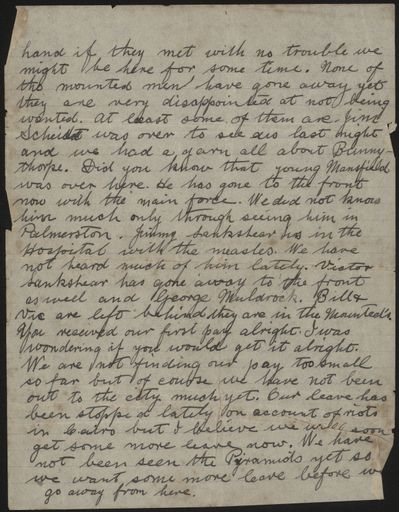 hand if they met with no trouble we
might be here for some time. None of
the mounted men have gone away yet
they are very disappointed at not being
wanted. At least some of them are. Jim
Scheidt was over to see us last night
and we had a yarn all about Bunny-
thorpe. Did you know that young Mansfield
was over here. He has gone to the front
now with the main force. We did not know
him much only through seeing him in
Palmerston. Jimmy Sankshear is in the
Hospital with the measles. We have
not heard much of him lately. Victor
Sankshear has gone away to the front
as well and George Muldrock. Bill &
Vic are left behind they are in the Mounteds.
You received our first pay alright. I was
wondering if you would get it alright.
We are not finding our pay too small
so far but of course we have not been
out to the city much yet. Our leave has
been stopped lately on account of riots
in Cairo but I believe we will soon
get some more leave now. We have
not been seen the Pyramids yet so
we want some more leave before we
go away from here.